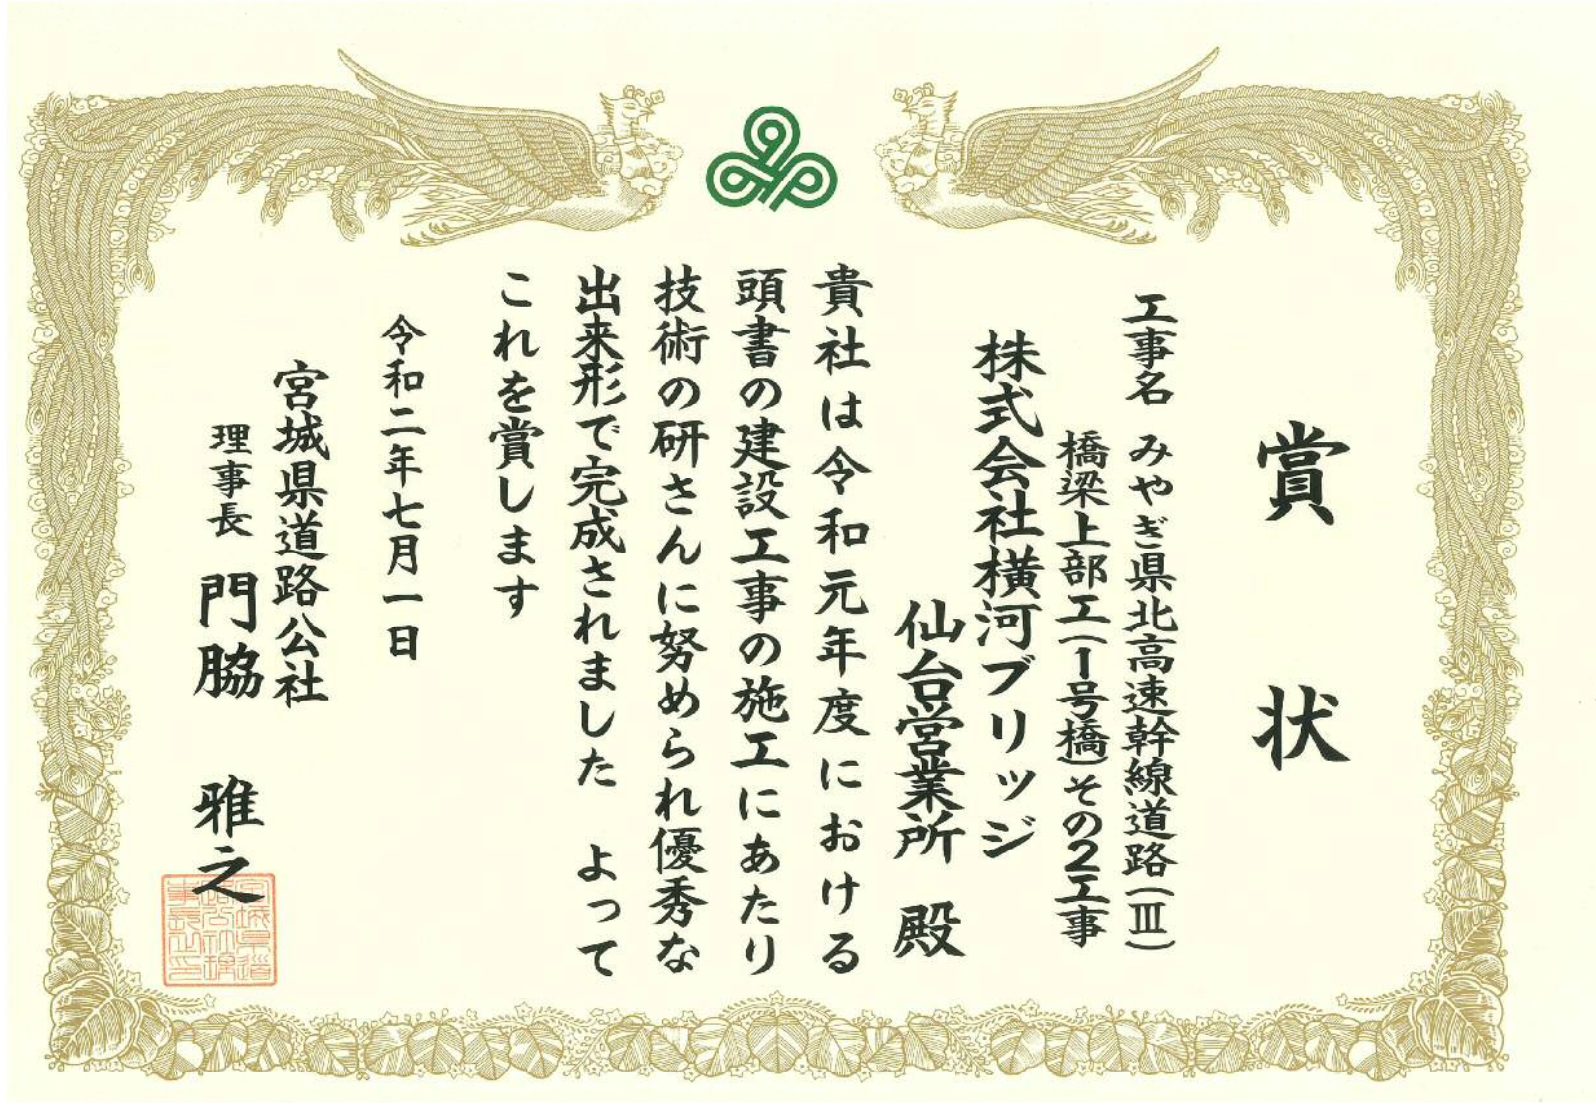 賞状
工事名 みやぎ県北高速幹線道路(Ⅲ)
橋梁上部工(1号橋)その2工事
株式会社横河ブリッジ
仙台営業所 殿
貴社は令和元年度における
頭書の建設工事の施工にあたり
技術の研さんに努められ優秀な
出来形で完成されました よって
これを賞します
令和二年七月一日
宮城県道路公社
理事長 門脇 雅之